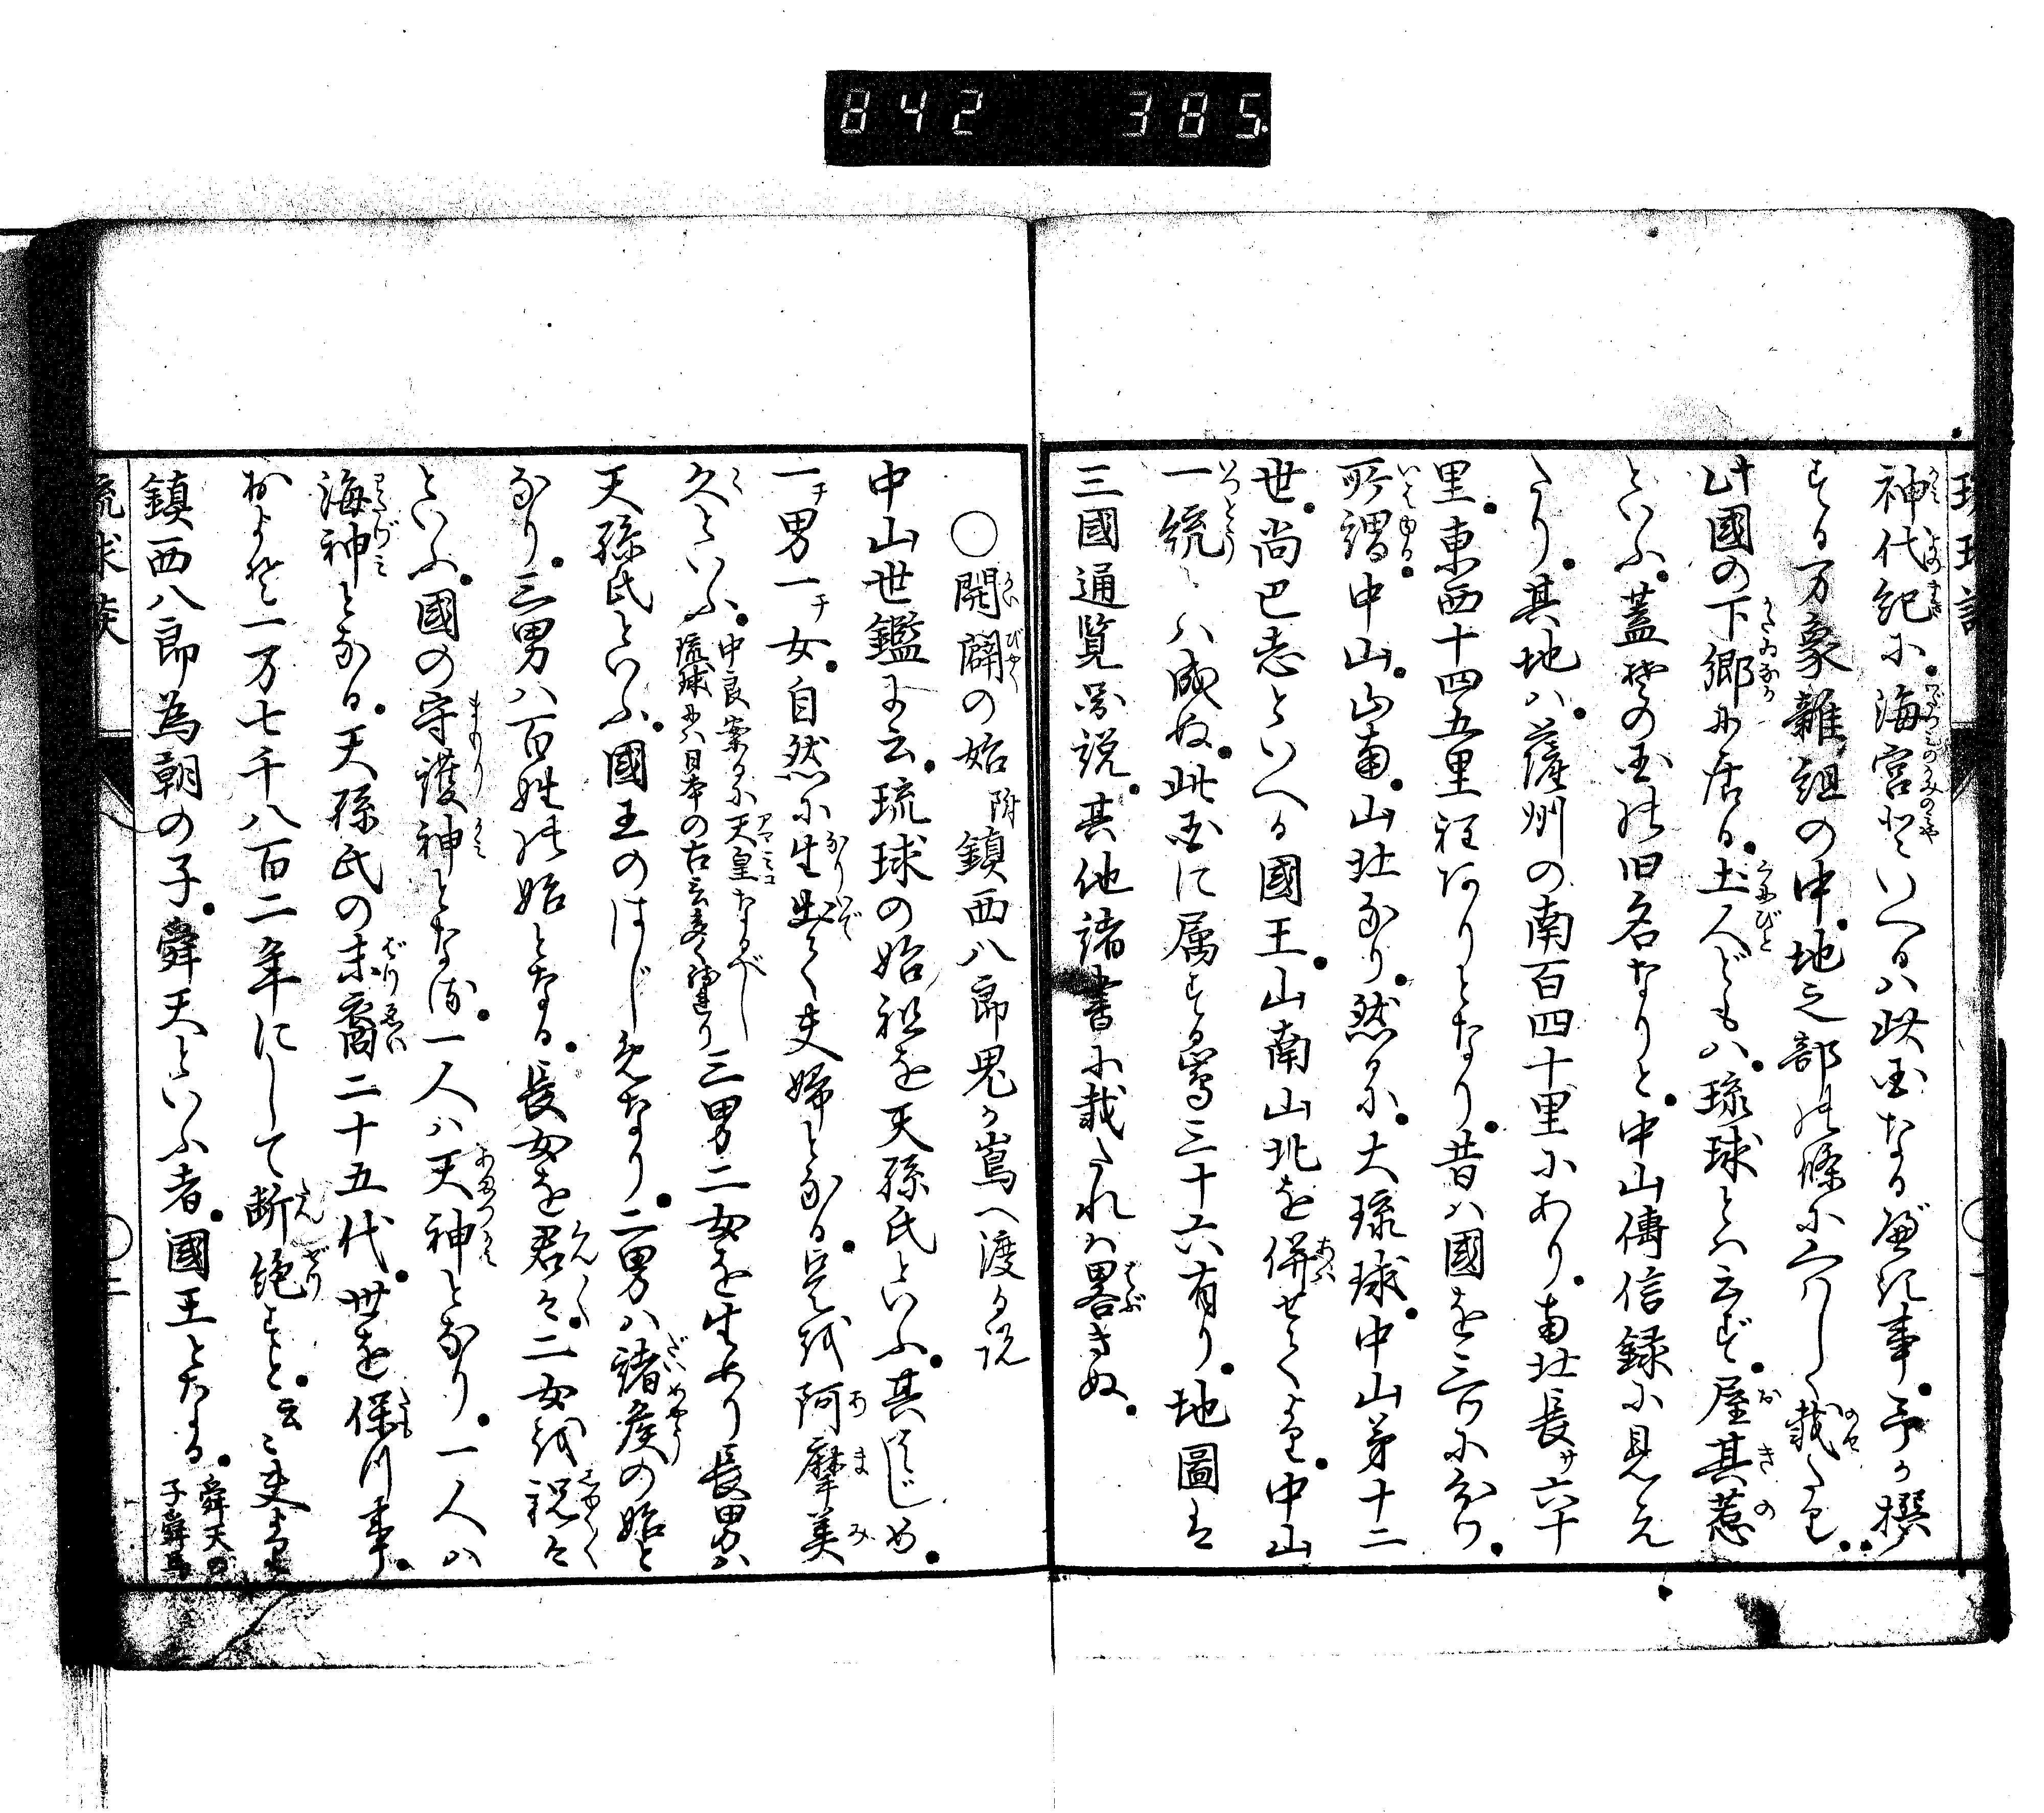 842 385
神代紀に海宮といへるは此国なるべき事予が撰
する万象雑組の中地之部の條に委しく載たり
此國の下郷に居る土人どもハ琉球とハ云ず屋其惹
といふ蓋其の国の旧名なりと中山傳信録に見え
たり其地ハ薩州の南百四十里にあり南北長サ六十
里東西十四五里程ありとなり昔ハ國を三ツに分ツ
所謂中山山南山北なり然るに大琉球中山第十二
世尚巴志といへる國王山南山北を併せてより中山
一統とハ成ぬ此国に属する嶌三十六有り地圖は
三國通覧図説其他諸書に載たれハ畧きぬ
〇開闢の始 附鎮西八郎鬼が嶌へ渡る説
中山世鑑に云琉球の始祖を天孫氏といふ其はじめ
一チ男一チ女自然に生出て夫婦となる是を阿摩美
久といふ 中良案るに天皇なるべし琉球にハ日本の古言多く傳ハれり 三男二女を生めり長男ハ
天孫氏といふ國王のはじめなり二男ハ諸侯の始と
なり三男ハ百姓の始となる長女を君々二女を祝々
といふ國の守護神となる一人ハ天神となり一人ハ
海神となる天孫氏の末裔二十五代世を保ツ事
およそ一万七千八百二年にして断絶すと云々夫より
鎮西八郎為朝の子舜天といふ者國王となる 舜天の子舜馬
琉球談
二